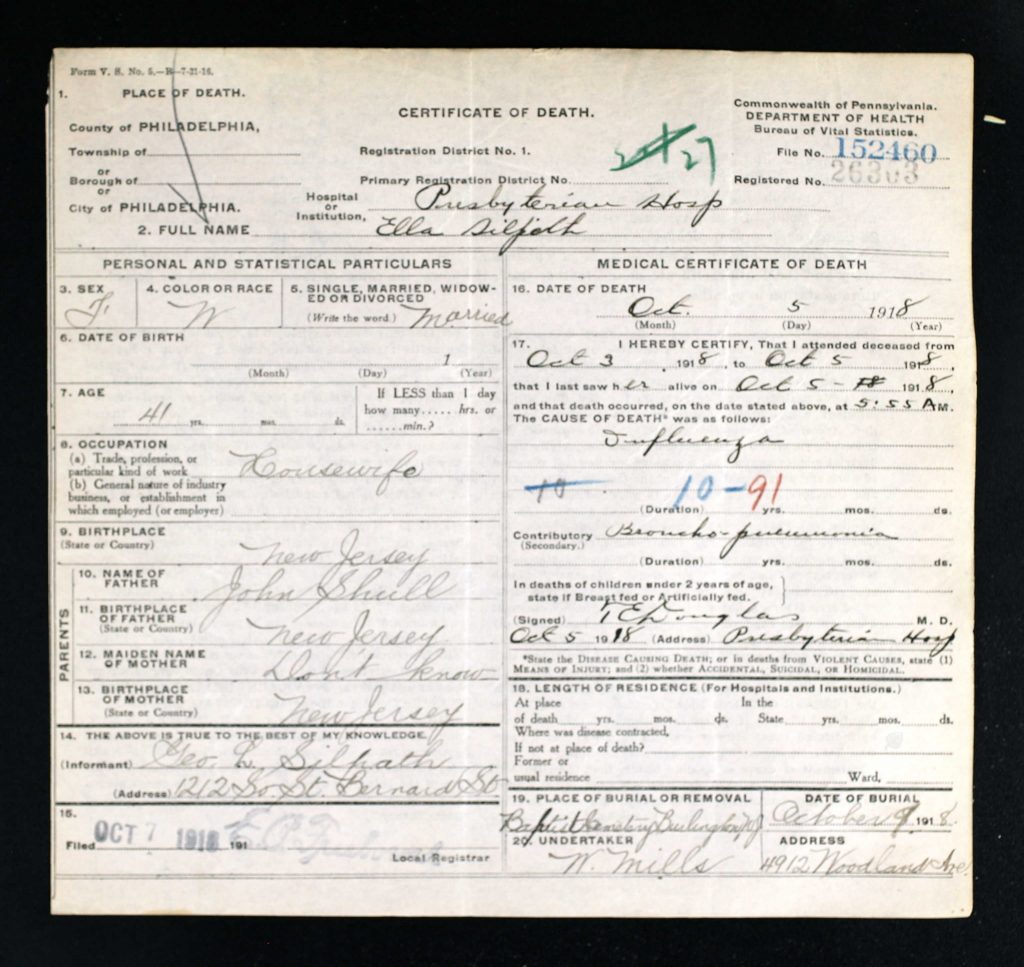 Form V. S. No. 5.—B—7-21-16.
1. PLACE OF DEATH.
County of PHILADELPHIA,
Township of
or
Borough of
or
City of PHILADELPHIA.
CERTIFICATE OF DEATH.
Registration District No. 1.
Primary Registration District No.
Hospital or Institution, Presbyterian Hosp
27
Commonwealth of Pennsylvania.
DEPARTMENT OF HEALTH
Bureau of Vital Statistics.
File No. 152460
Registered No. 26303
2. FULL NAME Ella
PERSONAL AND STATISTICAL PARTICULARS
3. SEX F.
4. COLOR OR RACE W
5. SINGLE, MARRIED, WIDOWED OR DIVORCED
(Write the word.) Married
6. DATE OF BIRTH
1
(Month) (Day) (Year)
7. AGE
41 yrs. mos. ds.
If LESS than 1 day
how many...... hrs. or
......min.?
8. OCCUPATION
(a) Trade, profession, or
particular kind of work Housewife
(b) General nature of industry
business, or establishment in
which employed (or employer)
9. BIRTHPLACE
(State or Country) New Jersey
PARENTS
10. NAME OF
FATHER John Shull
11. BIRTHPLACE
OF FATHER
(State or Country) New Jersey
12. MAIDEN NAME
OF MOTHER Don't know
13. BIRTHPLACE
OF MOTHER
(State or Country) New Jersey
14. THE ABOVE IS TRUE TO THE BEST OF MY KNOWLEDGE.
(Informant) Geo. L. Silpath
(Address) 1212 So. St. Bernard St
15.
Filed OCT 7 1918 191
Local Registrar
MEDICAL CERTIFICATE OF DEATH
16. DATE OF DEATH
Oct. 5 1918
(Month) (Day) (Year)
17. I HEREBY CERTIFY, That I attended deceased from
Oct 3, 1918, to Oct 5 1918,
that I last saw her alive on Oct 5 - 18 1918,
and that death occurred, on the date stated above, at 5:55 A M.
The CAUSE OF DEATH* was as follows:
Influenza
10 10-91
(Duration) yrs. mos. ds.
Contributory Broncho-pneumonia
(Secondary.)
(Duration) yrs. mos. ds.
In deaths of children under 2 years of age,
state if Breast fed or Artificially fed.
(Signed) T E Douglas M. D.
Oct 5 1918 (Address) Presbyterian Hosp
*State the DISEASE CAUSING DEATH; or in deaths from VIOLENT CAUSES, state (1)
MEANS OF INJURY; and (2) whether ACCIDENTAL, SUICIDAL, OR HOMICIDAL.
18. LENGTH OF RESIDENCE (For Hospitals and Institutions.)
At place In the
of death yrs. mos. ds. State yrs. mos. ds.
Where was disease contracted,
If not at place of death?
Former or
usual residence Ward,
19. PLACE OF BURIAL OR REMOVAL
Baptist Cemetery Burlington NJ
DATE OF BURIAL
October 9 1918.
20. UNDERTAKER
W. Mills
ADDRESS
4912 Woodland Ave.